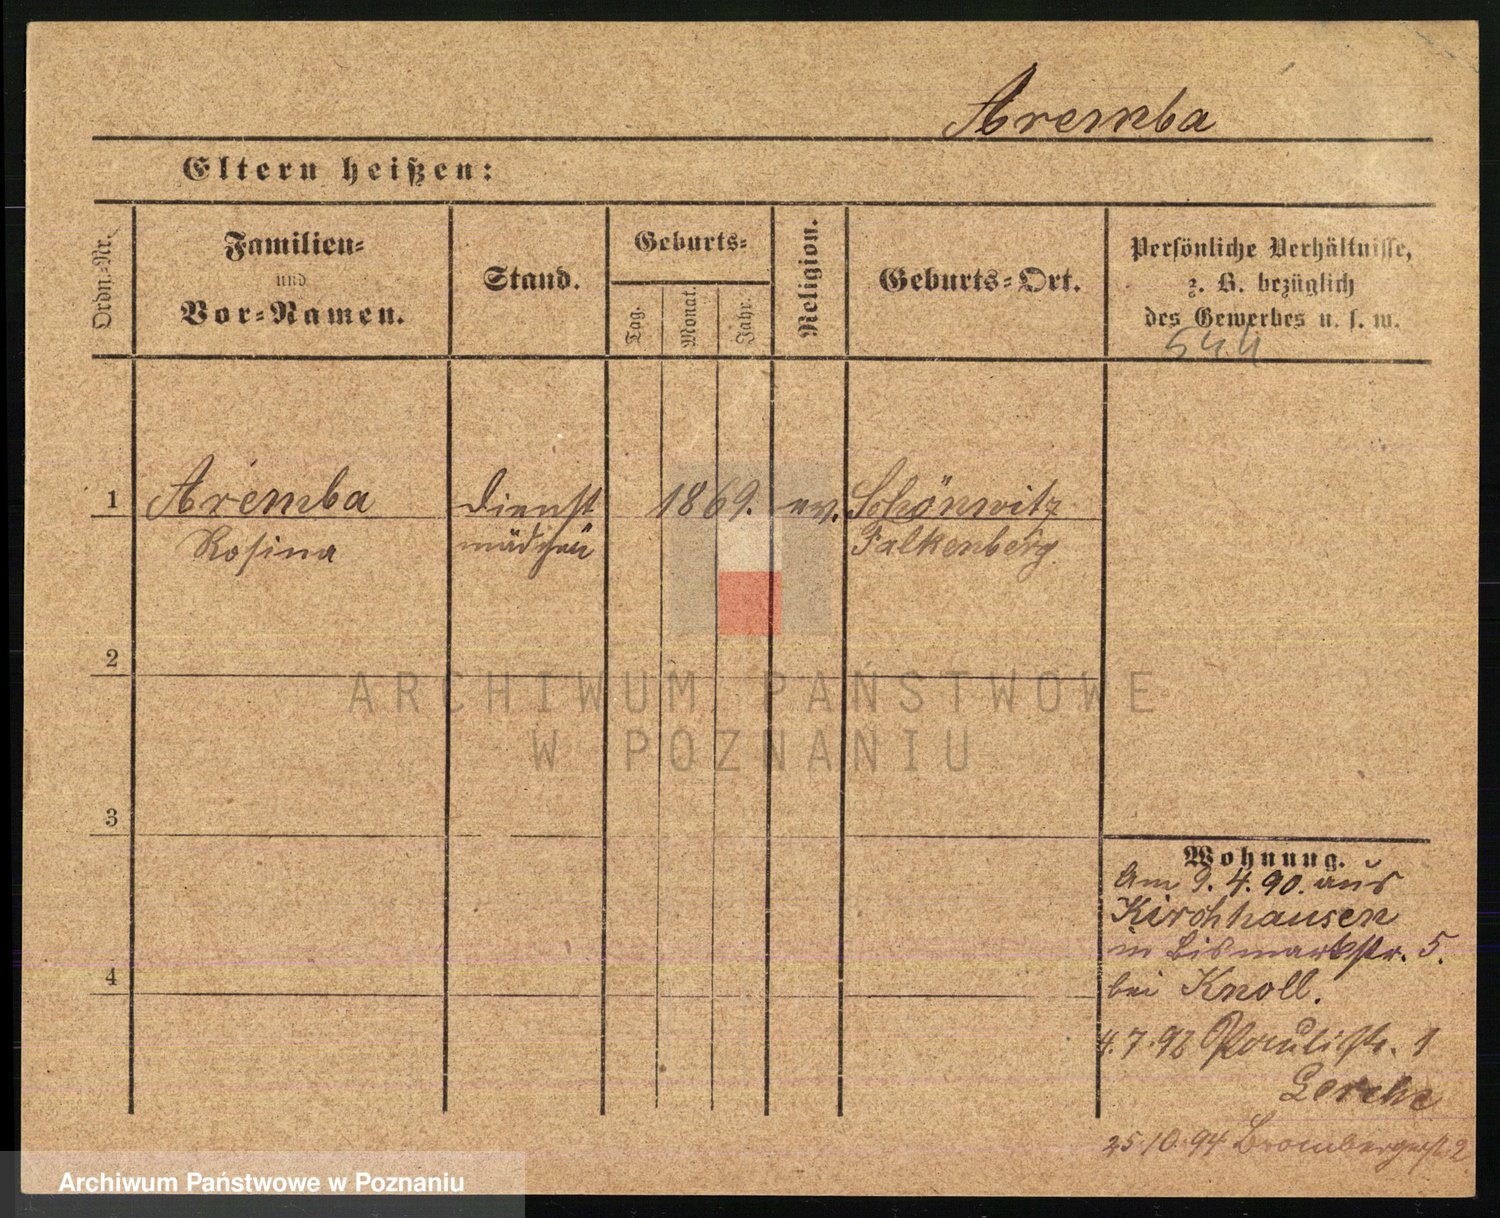 Aremba
Eltern heißen:
Ordn.-Nr.
Familien-
und
Vor-Namen.
Stand.
Geburts-
Tag.
Monat.
Jahr.
Religion.
Geburts-Ort.
Persönliche Verhältnisse,
z. B. bezüglich
des Gewerbes u. s. w.
544
1 Aremba Dienst 1869. ev. Schönwitz
Rosina mädchen Falkenberg
2
ARCHIWUM PAŃSTWOWE
W POZNANIU
3
4
Wohnung.
Am 9. 4. 90. aus
Kirchhausen
in Bismarkstr. 5.
bei Knoll.
4.7.92 Paulistr. 1
Lerche
25.10.94 Brombergerstr 2
Archiwum Państwowe w Poznaniu